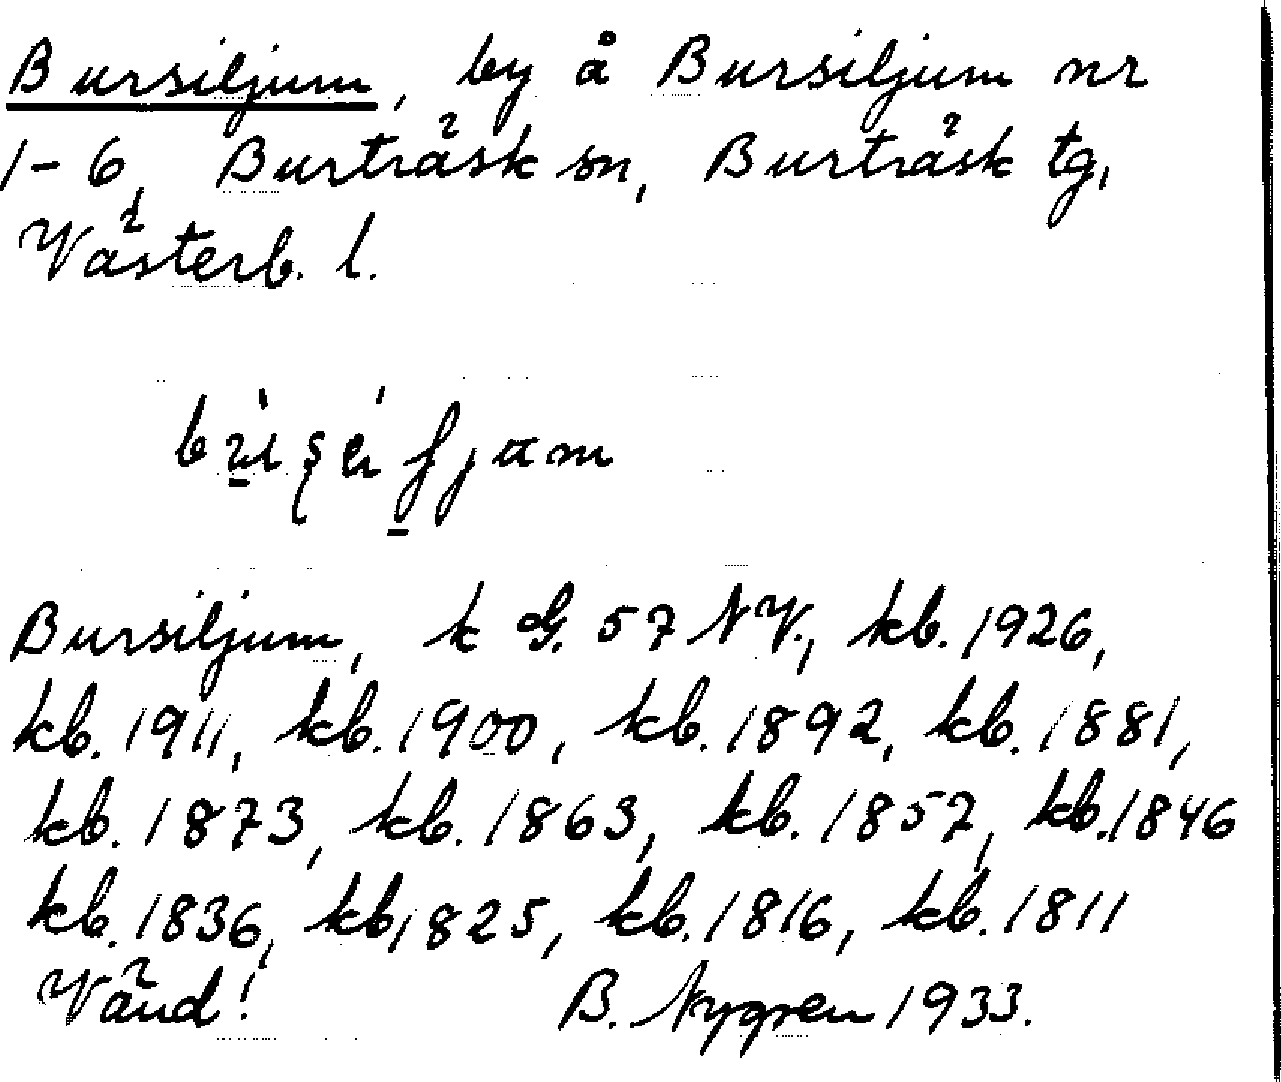 Bursiljum, by å Bursiljum nr
1-6, Burträsk sn, Burträsk tg,
Västerb. l.
Bursiljum, k G. 57 NV., kb. 1926,
kb. 1911, kb. 1900, kb. 1892, kb. 1881,
kb. 1873, kb. 1863, kb. 1857, kb. 1846
kb. 1836, kb, 1825, kb. 1816, kb. 1811
Vänd! B. Nygren 1933.